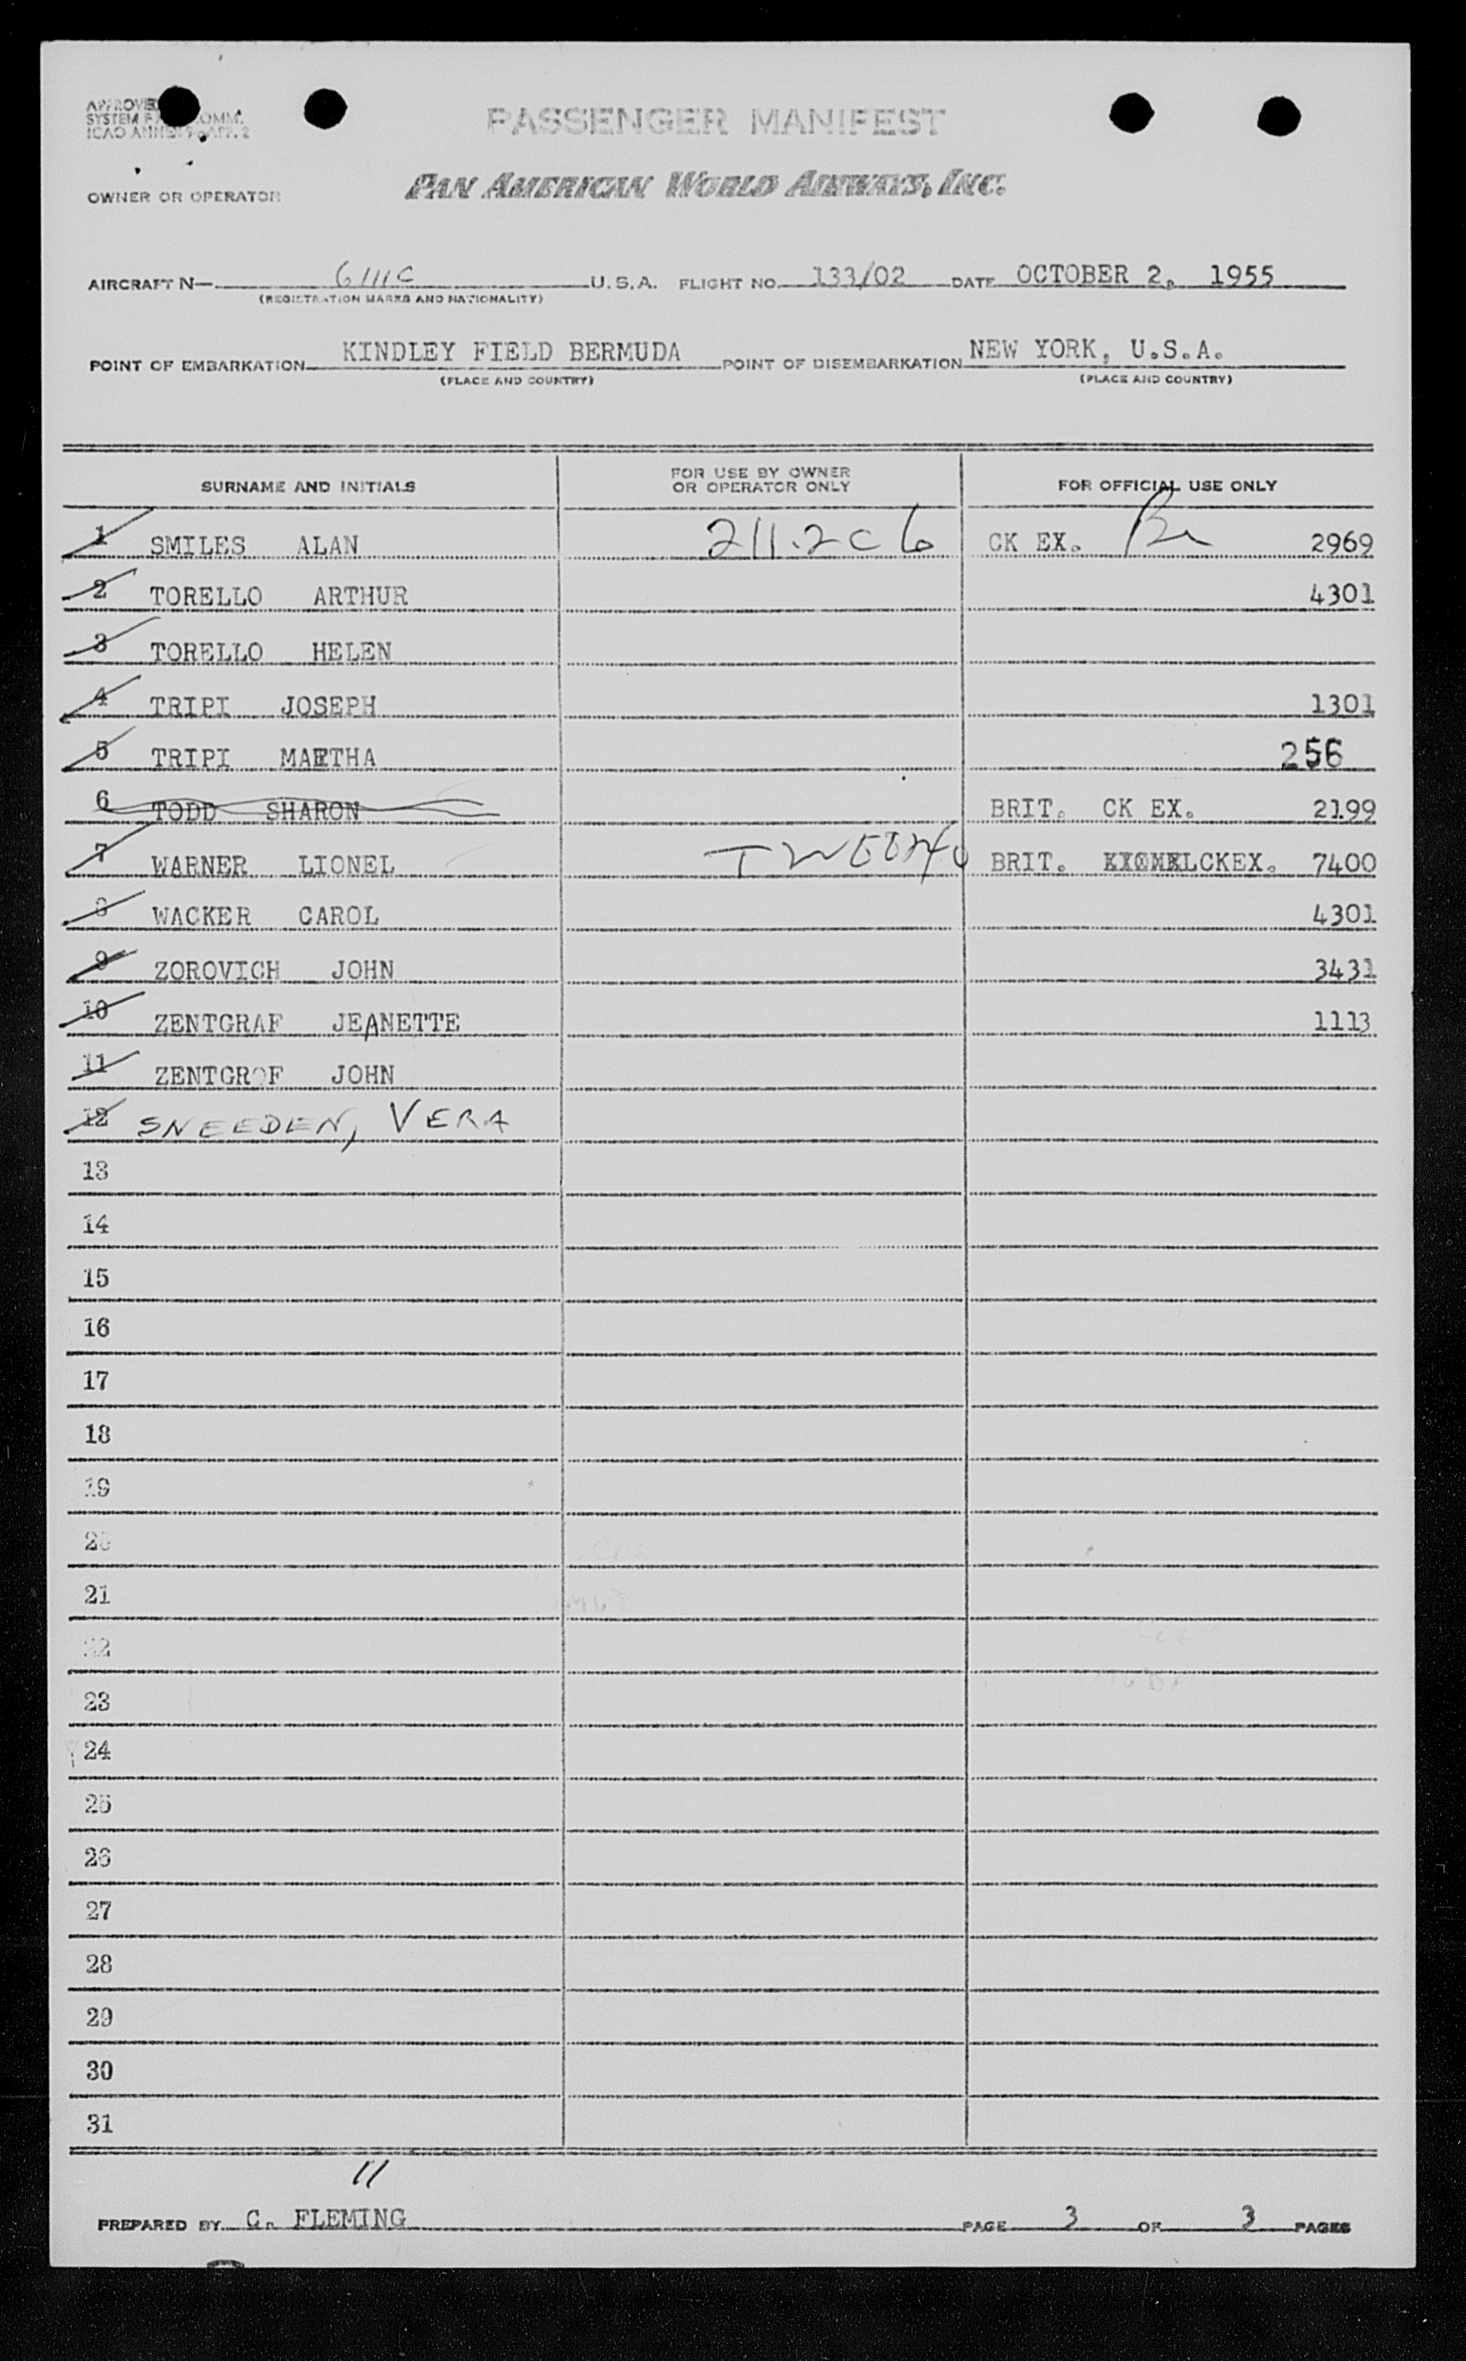 APPROVED
SYSTEM COMM.
ICAO ANNEX 9-APP. 2
PASSENGER MANIFEST
OWNER OR OPERATOR PAN AMERICAN WORLD AIRWAYS, INC.
AIRCRAFT N— 6111C U.S.A. FLIGHT NO. 133/02 DATE OCTOBER 2, 1955
(REGISTRATION MARKS AND NATIONALITY)
POINT OF EMBARKATION KINDLEY FIELD BERMUDA POINT OF DISEMBARKATION NEW YORK, U.S.A.
(PLACE AND COUNTRY) (PLACE AND COUNTRY)
SURNAME AND INITIALS FOR USE BY OWNER OR OPERATOR ONLY FOR OFFICIAL USE ONLY
1 SMILES ALAN 211.2c6 CK EX. 2969
2 TORELLO ARTHUR 4301
3 TORELLO HELEN
4 TRIPI JOSEPH 1301
5 TRIPI MARTHA 256
6 TODD SHARON BRIT. CK EX. 2199
7 WARNER LIONEL BRIT. CKEX. 7400
8 WACKER CAROL 4301
9 ZOROVICH JOHN 3431
10 ZENTGRAF JEANETTE 1113
11 ZENTGROF JOHN
12 SNEEDEN, VERA
13
14
15
16
17
18
19
20
21
22
23
24
25
26
27
28
29
30
31
11
PREPARED BY C. FLEMING PAGE 3 OF 3 PAGES